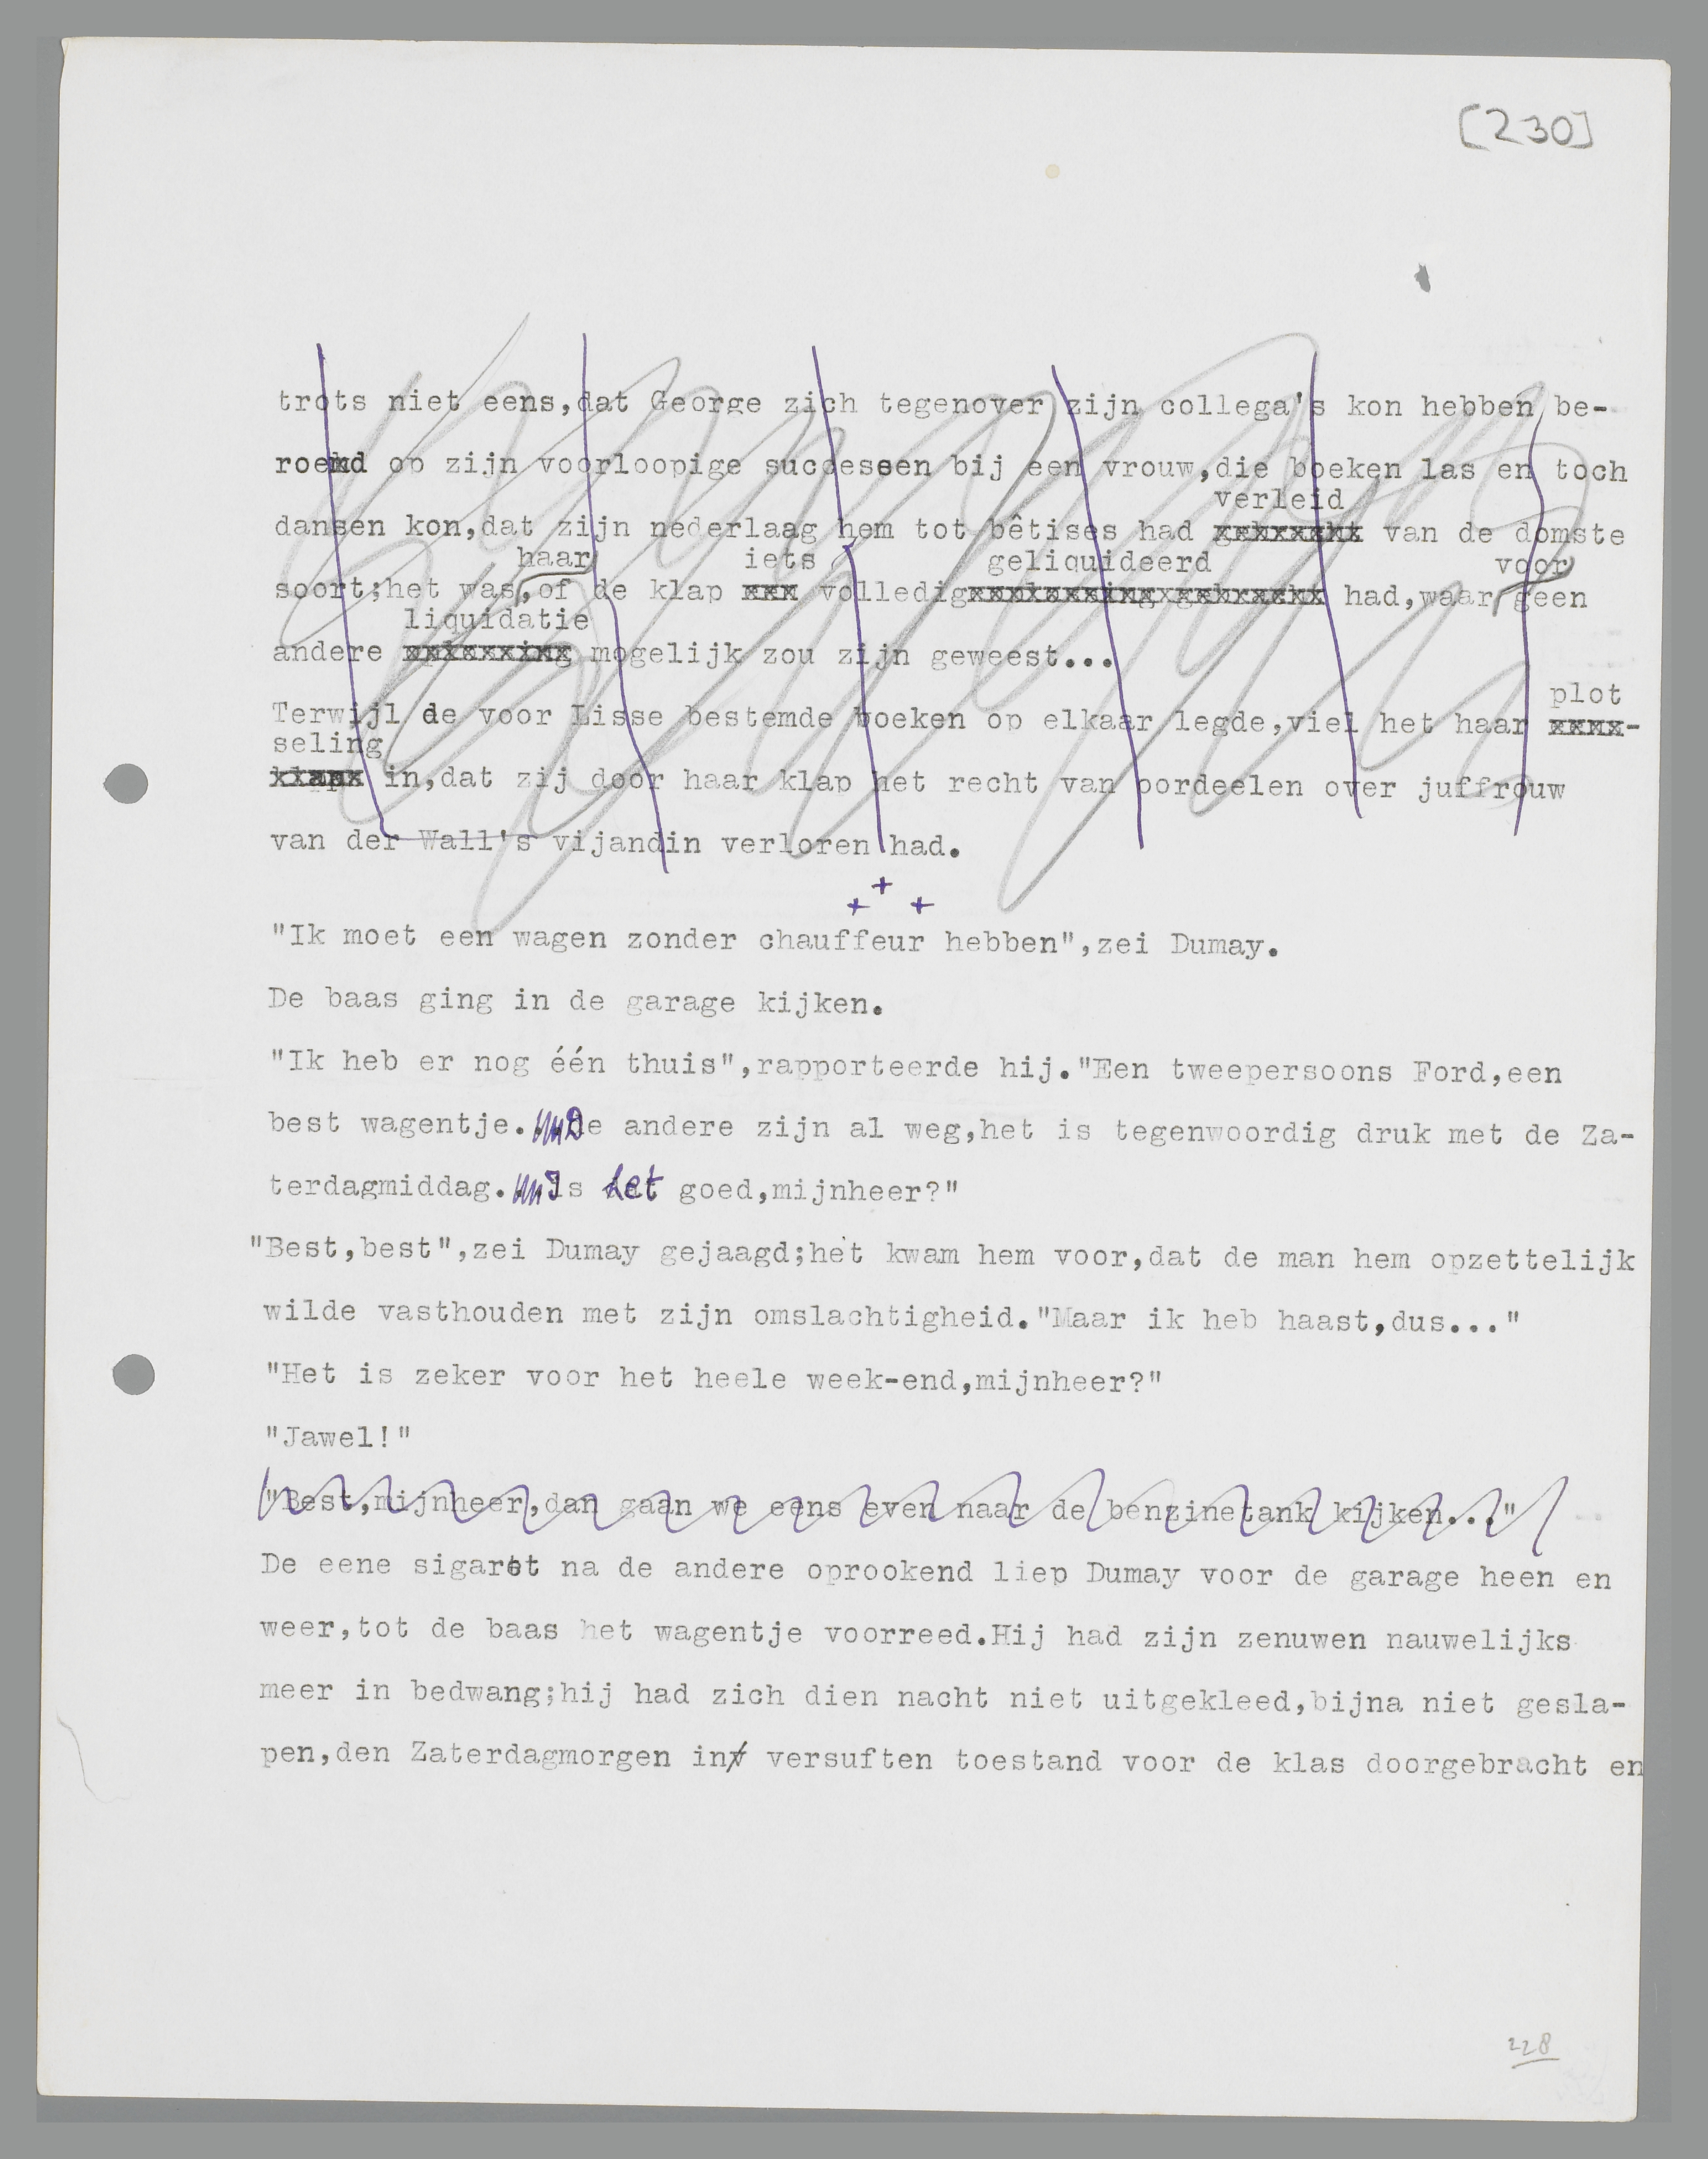 [230]
trots niet eens,dat George zich tegenover zijn collega's kon hebben be-
roemd op zijn voorloopige successen bij een vrouw,die boeken las en toch
verleid
dansen kon,dat zijn nederlaag hem tot bêtises had van de domste
haar iets geliquideerd voor
soort;het was,of de klap volledig had,waar geen
liquidatie
andere mogelijk zou zijn geweest...
plot
Terwijl de voor Lisse bestemde boeken op elkaar legde,viel het haar -
seling
in,dat zij door haar klap het recht van oordeelen over juffrouw
van der Wall's vijandin verloren had.
+ + +
"Ik moet een wagen zonder chauffeur hebben",zei Dumay.
De baas ging in de garage kijken.
"Ik heb er nog één thuis",rapporteerde hij."Een tweepersoons Ford,een
best wagentje. De andere zijn al weg,het is tegenwoordig druk met de Za-
terdagmiddag. Is het goed,mijnheer?"
"Best,best",zei Dumay gejaagd;het kwam hem voor,dat de man hem opzettelijk
wilde vasthouden met zijn omslachtigheid."Maar ik heb haast,dus..."
"Het is zeker voor het heele week-end,mijnheer?"
"Jawel!"
"Best,mijnheer,dan gaan we eens even naar de benzinetank kijken..."
De eene sigaret na de andere oprookend liep Dumay voor de garage heen en
weer,tot de baas het wagentje voorreed.Hij had zijn zenuwen nauwelijks
meer in bedwang;hij had zich dien nacht niet uitgekleed,bijna niet gesla-
pen,den Zaterdagmorgen in versuften toestand voor de klas doorgebracht en
228